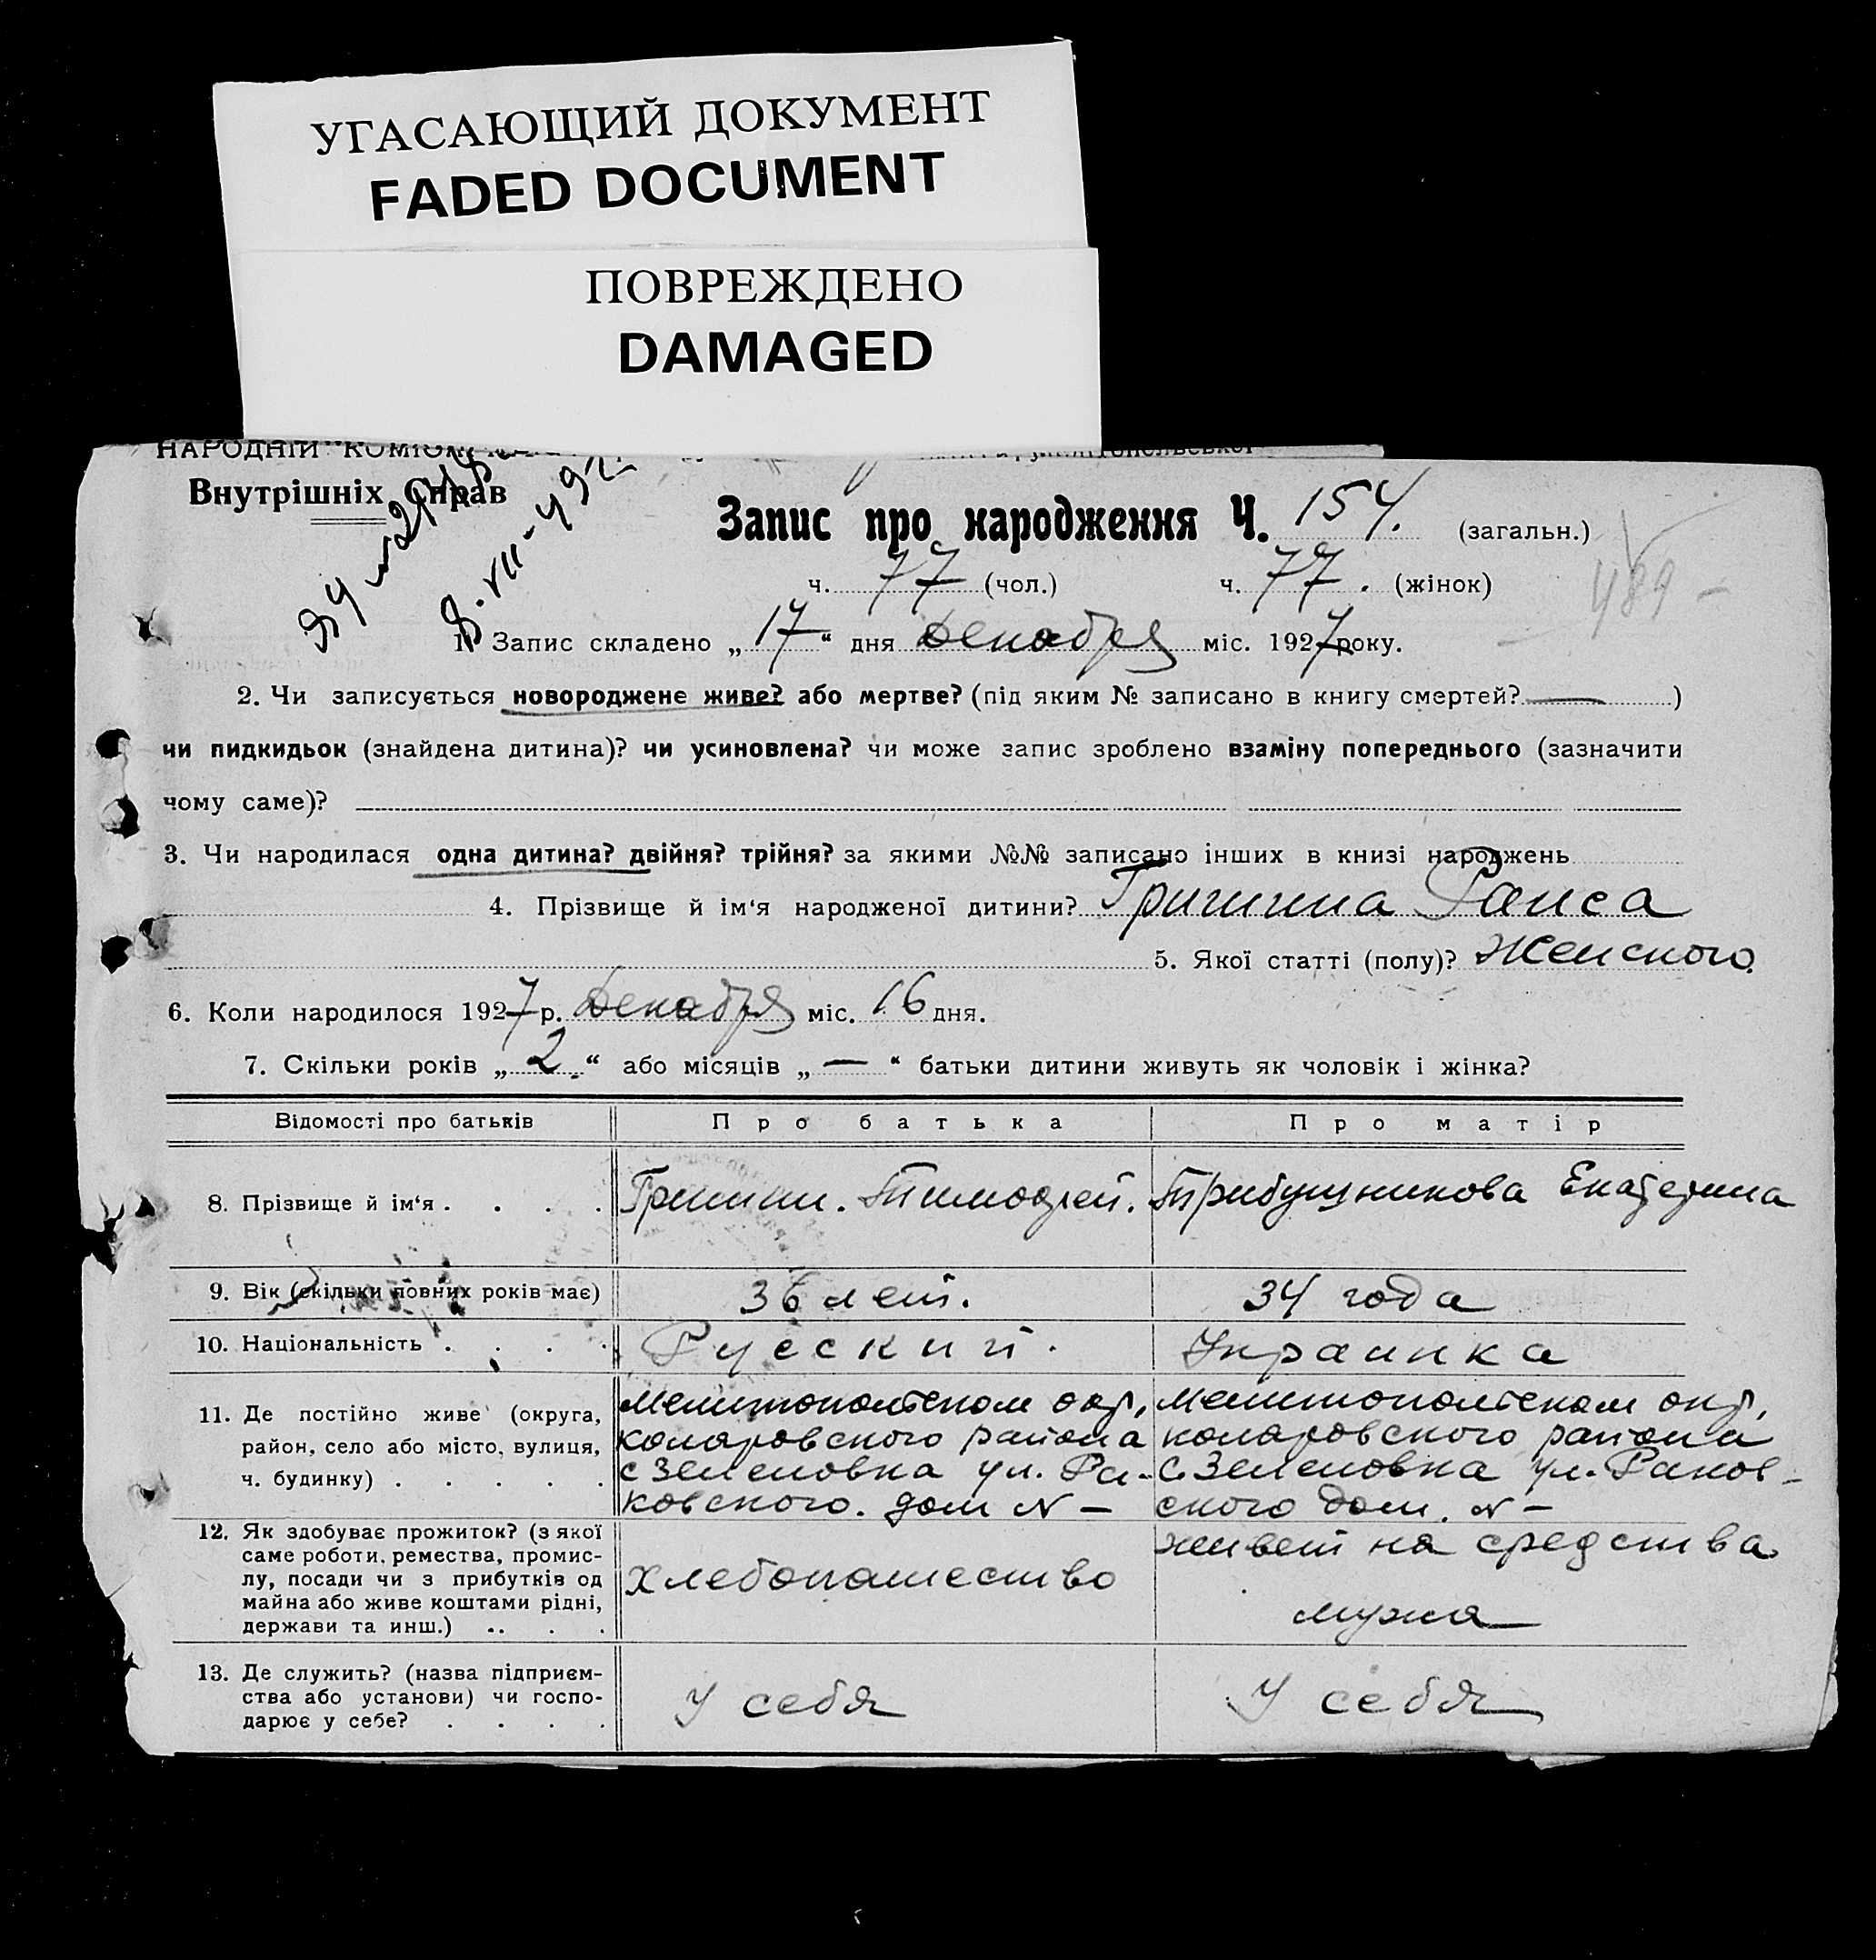 УГАСАЮЩИЙ ДОКУМЕНТ
FADED DOCUMENT
ПОВРЕЖДЕНО
DAMAGED
НАРОДНІЙ
Внутрішніх Справ
Запис про народження Ч. 154. (загальн.)
489 -
ч. 77 (чол.) ч. 77. (жінок)
1. Запис складено „17“ дня декабря міс. 1927 року.
2. Чи записується новороджене живе? або мертве? (під яким № записано в книгу смертей? — )
чи пидкидьок (знайдена дитина)? чи усиновлена? чи може запис зроблено взаміну попереднього (зазначити
чому саме)?
3. Чи народилася одна дитина? двійня? трійня? за якими №№ записано інших в книзі народжень
4. Прізвище й ім‘я народженої дитини? Гришина Раиса
5. Якої статті (полу)? Женского
6. Коли народилося 1927 р. декабря міс. 16 дня.
7. Скільки років „2“ або місяців „—“ батьки дитини живуть як чоловік і жінка?
Відомості про батьків Про батька Про матір
8. Прізвище й ім‘я . . . . Гришин. Тимофей. Трибушникова Екатерина
9. Вік (скільки повних років має) 36 лет. 34 года
10. Національність . . . . Русский. Украинка
11. Де постійно живе (округа,
район, село або місто, вулиця,
ч. будинку) . . . . .
Мелитопольском окр,
коларовского района
с Зеленовка ул. Ра-
ковского. дом N —
Мелитопольском окр,
коларовского района
с. Зеленовка ул. Раков-
ского дом. N —
12. Як здобуває прожиток? (з якої
саме роботи, ремества, промис-
лу, посади чи з прибутків од
майна або живе коштами рідні,
держави та инш.) .. . .
хлебопашество
живет на средства
мужа
13. Де служить? (назва підприєм-
ства або установи) чи госпо-
дарює у себе? . . . .
У себя
У себя